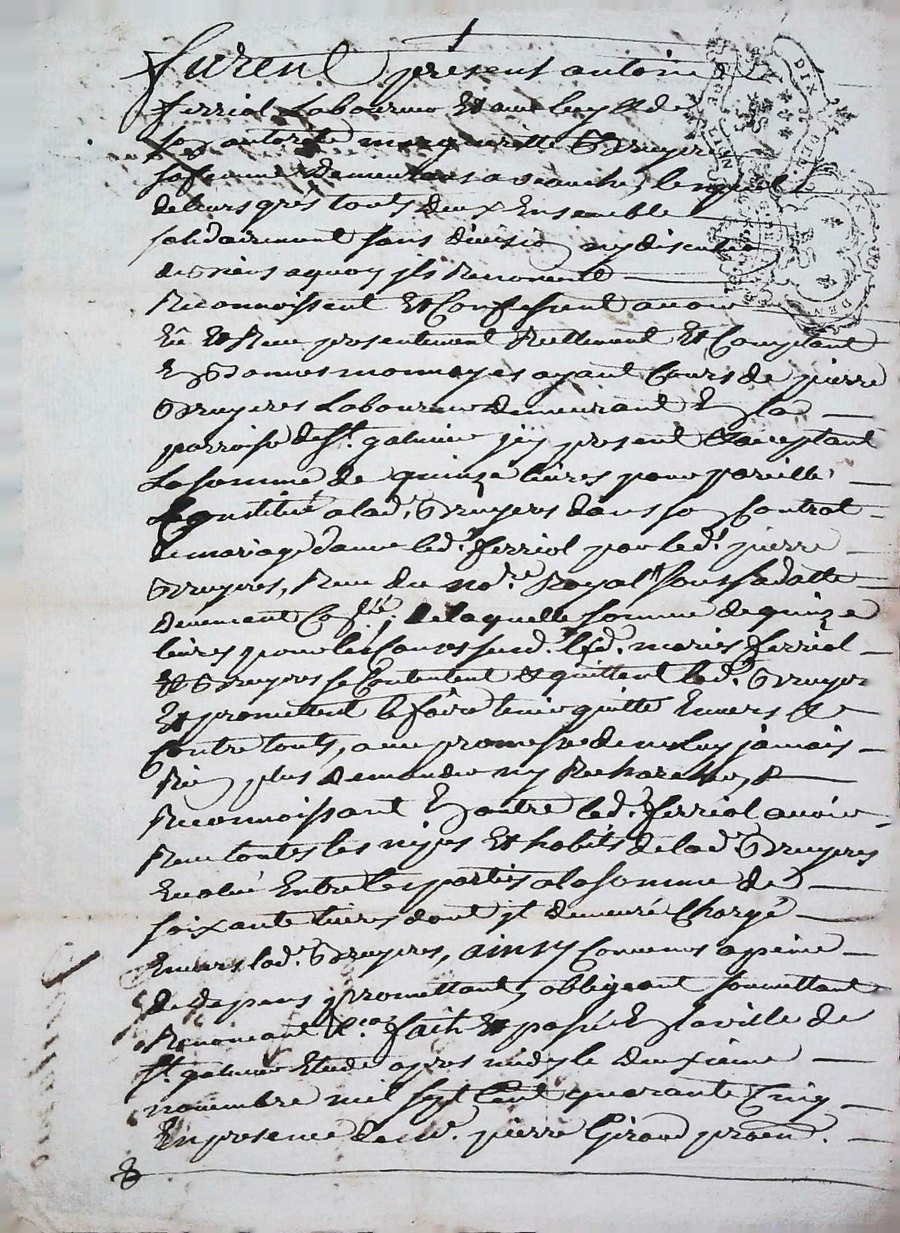 Furent présent antoine
ferriol Laboureur Et avec luy Et de
son autorité margueritte Bruyere
sa femme demeurans a lesquels
de leurs grés touts deux Ensemble
solidairement sans division ny discution
de biens a quoy jls Renoncent
Reconnoissent Et Confessent avoir
Eû Et Receu presentement Reellement Et Comptant
En Bonnes monnoyes ayant Cours de pierre
Bruyeres Laboureur demeurant En la
parroisse de St. galmier jcy present Et acceptant
La somme de quinze livres pour pareille
Constitué a lad. Bruyeres dans son Contrat
de mariage d'avec led. ferriol par led. pierre
Bruyeres, Receu du nore. Royal soussd. datte
deuement Conllé, de laquelle somme de quinze
livres pour les Causes susd. lesd. mariés ferriol
Et Bruyeres se Contentent Et quittent led. Bruyer
Et promettent le faire tenir quitte Envers Et
Contre touts, avec promesse de ne luy jamais
Rien plus demander ny Rechercher, Et
Reconnoissant En outre led. ferriol avoir
Receu toutes les nipes Et habits de lad. Bruyeres
Evalué Entre les parties a la somme de
soixante livres dont jl demeure Chargé
Envers lad. Bruyeres, ainsy Convenus a peine
de depens promettant, obligeant soumettant
Renonceant Etca. fait Et passé En la ville de
St. galmier Etude apres midy le deuxieme
novembre mil sept Cent quarante Cinq
En presence de sr. pierre Giraud praen.